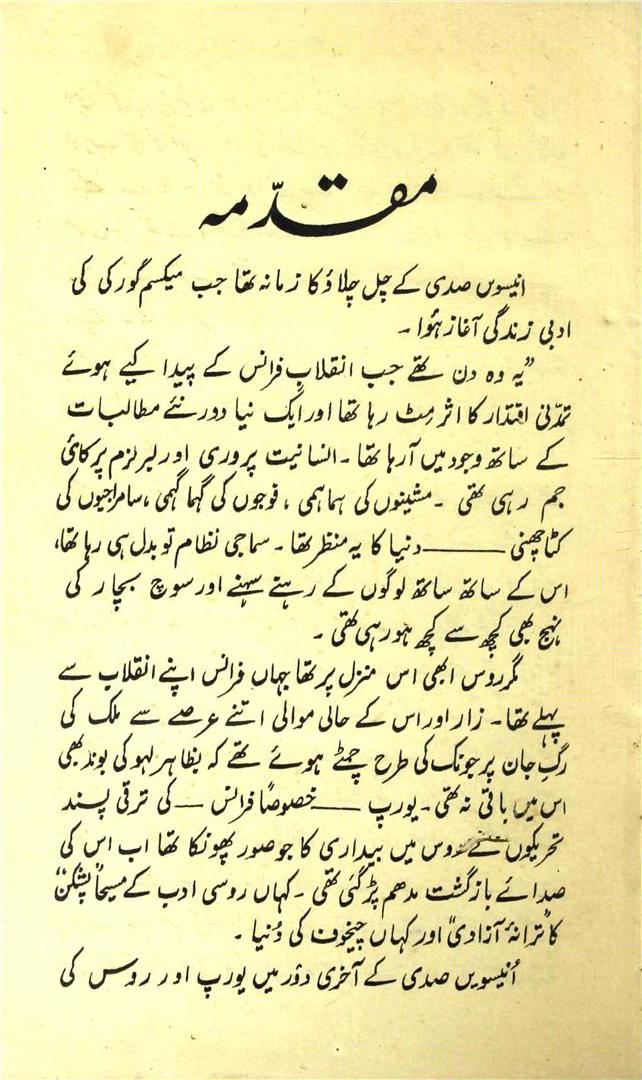 مقدّمہ
انیسوں صدی کے چل چلاؤ کا زمانہ تھا جب میکسم گورکی کی
ادبی زندگی آغاز ہؤا ۔
”یہ وہ دن تھے جب انقلابِ فرانس کے پیدا کیے ہوئے
تمدّنی اقتدار کا اثر مِٹ رہا تھا اور ایک نیا دور نئے مطالبات
کے ساتھ وجود میں آرہا تھا ۔ انسانیت پروری اور لبرلزم پر کائی
جم رہی تھی ۔ مشینوں کی ہماہمی ، فوجوں کی گہما گہمی ، سامراجیوں کی
کٹا چھنی ——— دنیا کا یہ منظر تھا ۔ سماجی نظام تو بدل ہی رہا تھا،
اس کے ساتھ ساتھ لوگوں کے رہنے سہنے اور سوچ بچار کی
نہج بھی کچھ سے کچھ ہو رہی تھی ۔
مگر روس ابھی اس منزل پر تھا جہاں فرانس اپنے انقلاب سے
پہلے تھا ۔ زار اور اس کے حالی موالی اتنے عرصے سے ملک کی
رگِ جان پر جونک کی طرح چمٹے ہوئے تھے کہ بظاہر لہو کی بوند بھی
اس میں باقی نہ تھی ۔ یورپ —— خصوصاً فرانس — کی ترقی پسند
تحریکوں نے روس میں بیداری کا جو صور پھونکا تھا اب اس کی
صدائے بازگشت مدھم پڑ گئی تھی ۔ کہاں روسی ادب کے مسیحا پشکن
کا ”ترانۂ آزادی“ اور کہاں چیخوف کی دُنیا ۔
اُنیسویں صدی کے آخری دَور میں یورپ اور روس کی